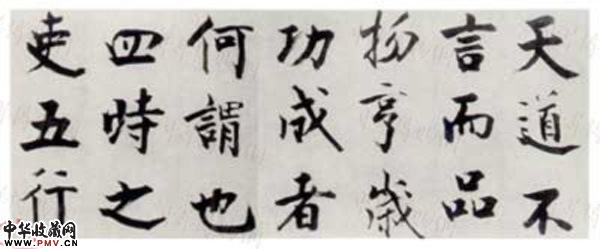 天道不
言而品
物亨歲
功成者
何謂也
四時之
吏五行
中华收藏网
www.PMV.CN